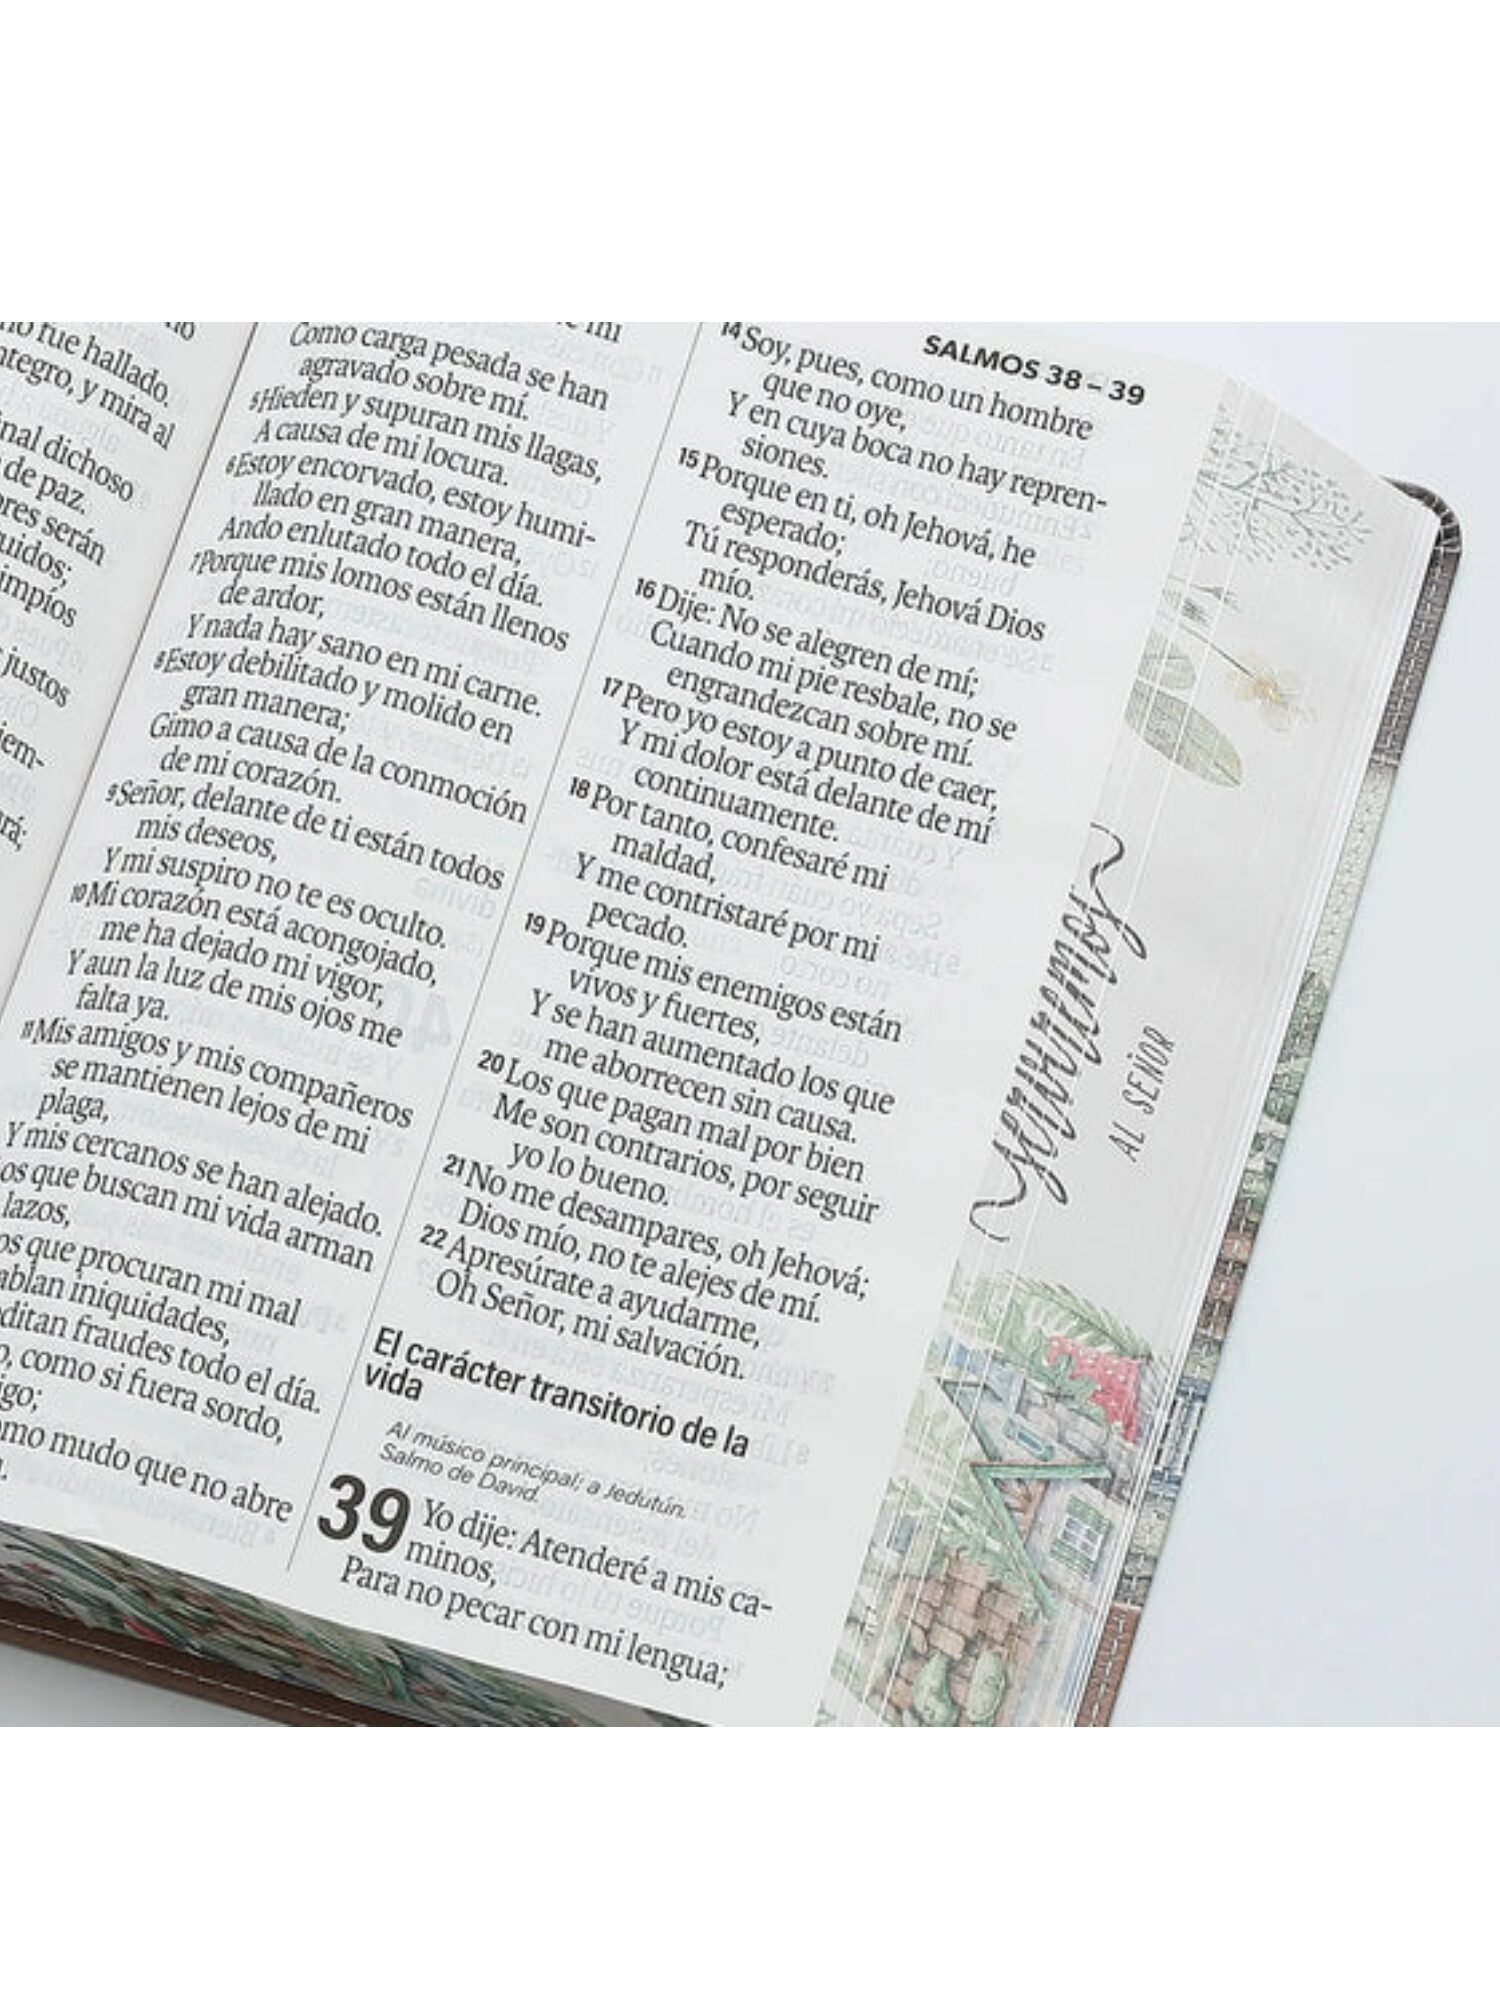 SALMOS 38 – 39
no fue hallado.
ntegro, y mira al
nal dichoso
de paz.
serán
uidos;
impíos
justos
Como carga pesada se han
agravado sobre mí.
5 Hieden y supuran mis llagas,
A causa de mi locura.
6 Estoy encorvado, estoy humi-
llado en gran manera,
Ando enlutado todo el día.
7 Porque mis lomos están llenos
de ardor,
Y nada hay sano en mi carne.
8 Estoy debilitado y molido en
gran manera;
Gimo a causa de la conmoción
de mi corazón.
9 Señor, delante de ti están todos
mis deseos,
Y mi suspiro no te es oculto.
10 Mi corazón está acongojado,
me ha dejado mi vigor,
Y aun la luz de mis ojos me
falta ya.
11 Mis amigos y mis compañeros
se mantienen lejos de mi
plaga,
Y mis cercanos se han alejado.
os que buscan mi vida arman
lazos,
os que procuran mi mal
ablan iniquidades,
ditan fraudes todo el día.
o, como si fuera sordo,
igo;
omo mudo que no abre
14 Soy, pues, como un hombre
que no oye,
Y en cuya boca no hay repren-
siones.
15 Porque en ti, oh Jehová, he
esperado;
Tú responderás, Jehová Dios
mío.
16 Dije: No se alegren de mí;
Cuando mi pie resbale, no se
engrandezcan sobre mí.
17 Pero yo estoy a punto de caer,
Y mi dolor está delante de mí
continuamente.
18 Por tanto, confesaré mi
maldad,
Y me contristaré por mi
pecado.
19 Porque mis enemigos están
vivos y fuertes,
Y se han aumentado los que
me aborrecen sin causa.
20 Los que pagan mal por bien
Me son contrarios, por seguir
yo lo bueno.
21 No me desampares, oh Jehová;
Dios mío, no te alejes de mí.
22 Apresúrate a ayudarme,
Oh Señor, mi salvación.
El carácter transitorio de la
vida
Al músico principal; a Jedutún.
Salmo de David.
39 Yo dije: Atenderé a mis ca-
minos,
Para no pecar con mi lengua;
serviremos
AL SEÑOR